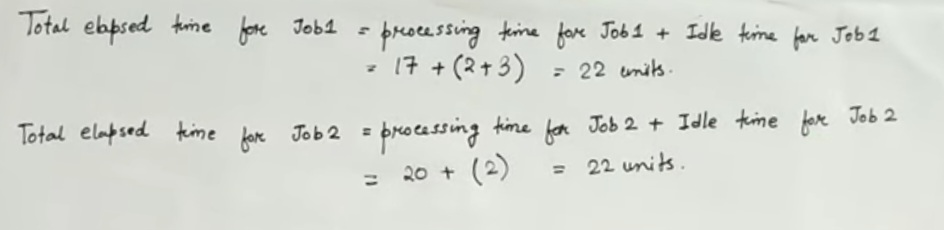 Total elapsed time for Job1 = processing time for Job1 + Idle time for Job1
= 17 + (2+3) = 22 units.
Total elapsed time for Job2 = processing time for Job2 + Idle time for Job2
= 20 + (2) = 22 units.